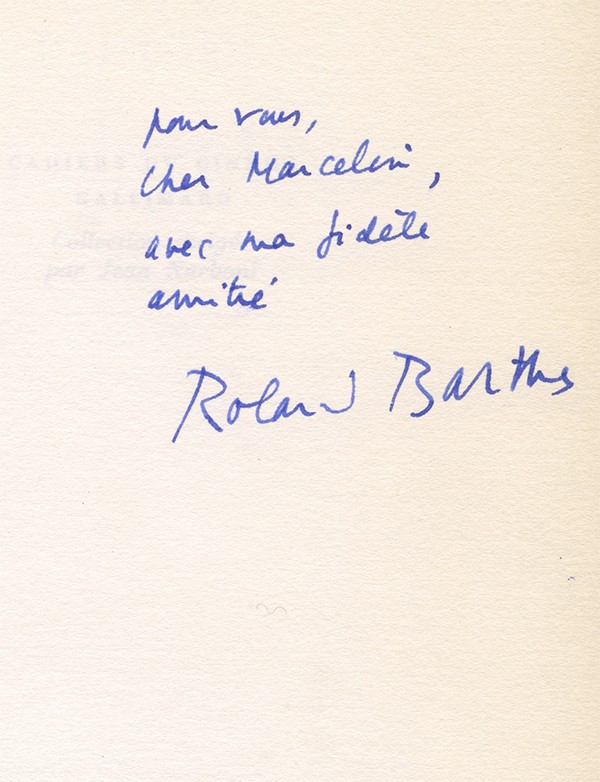 pour vous,
cher Marcelin,
avec ma fidèle
amitié
Roland Barthes
CAHIERS DU CINÉMA
GALLIMARD
Collection dirigée
par Jean Narboni